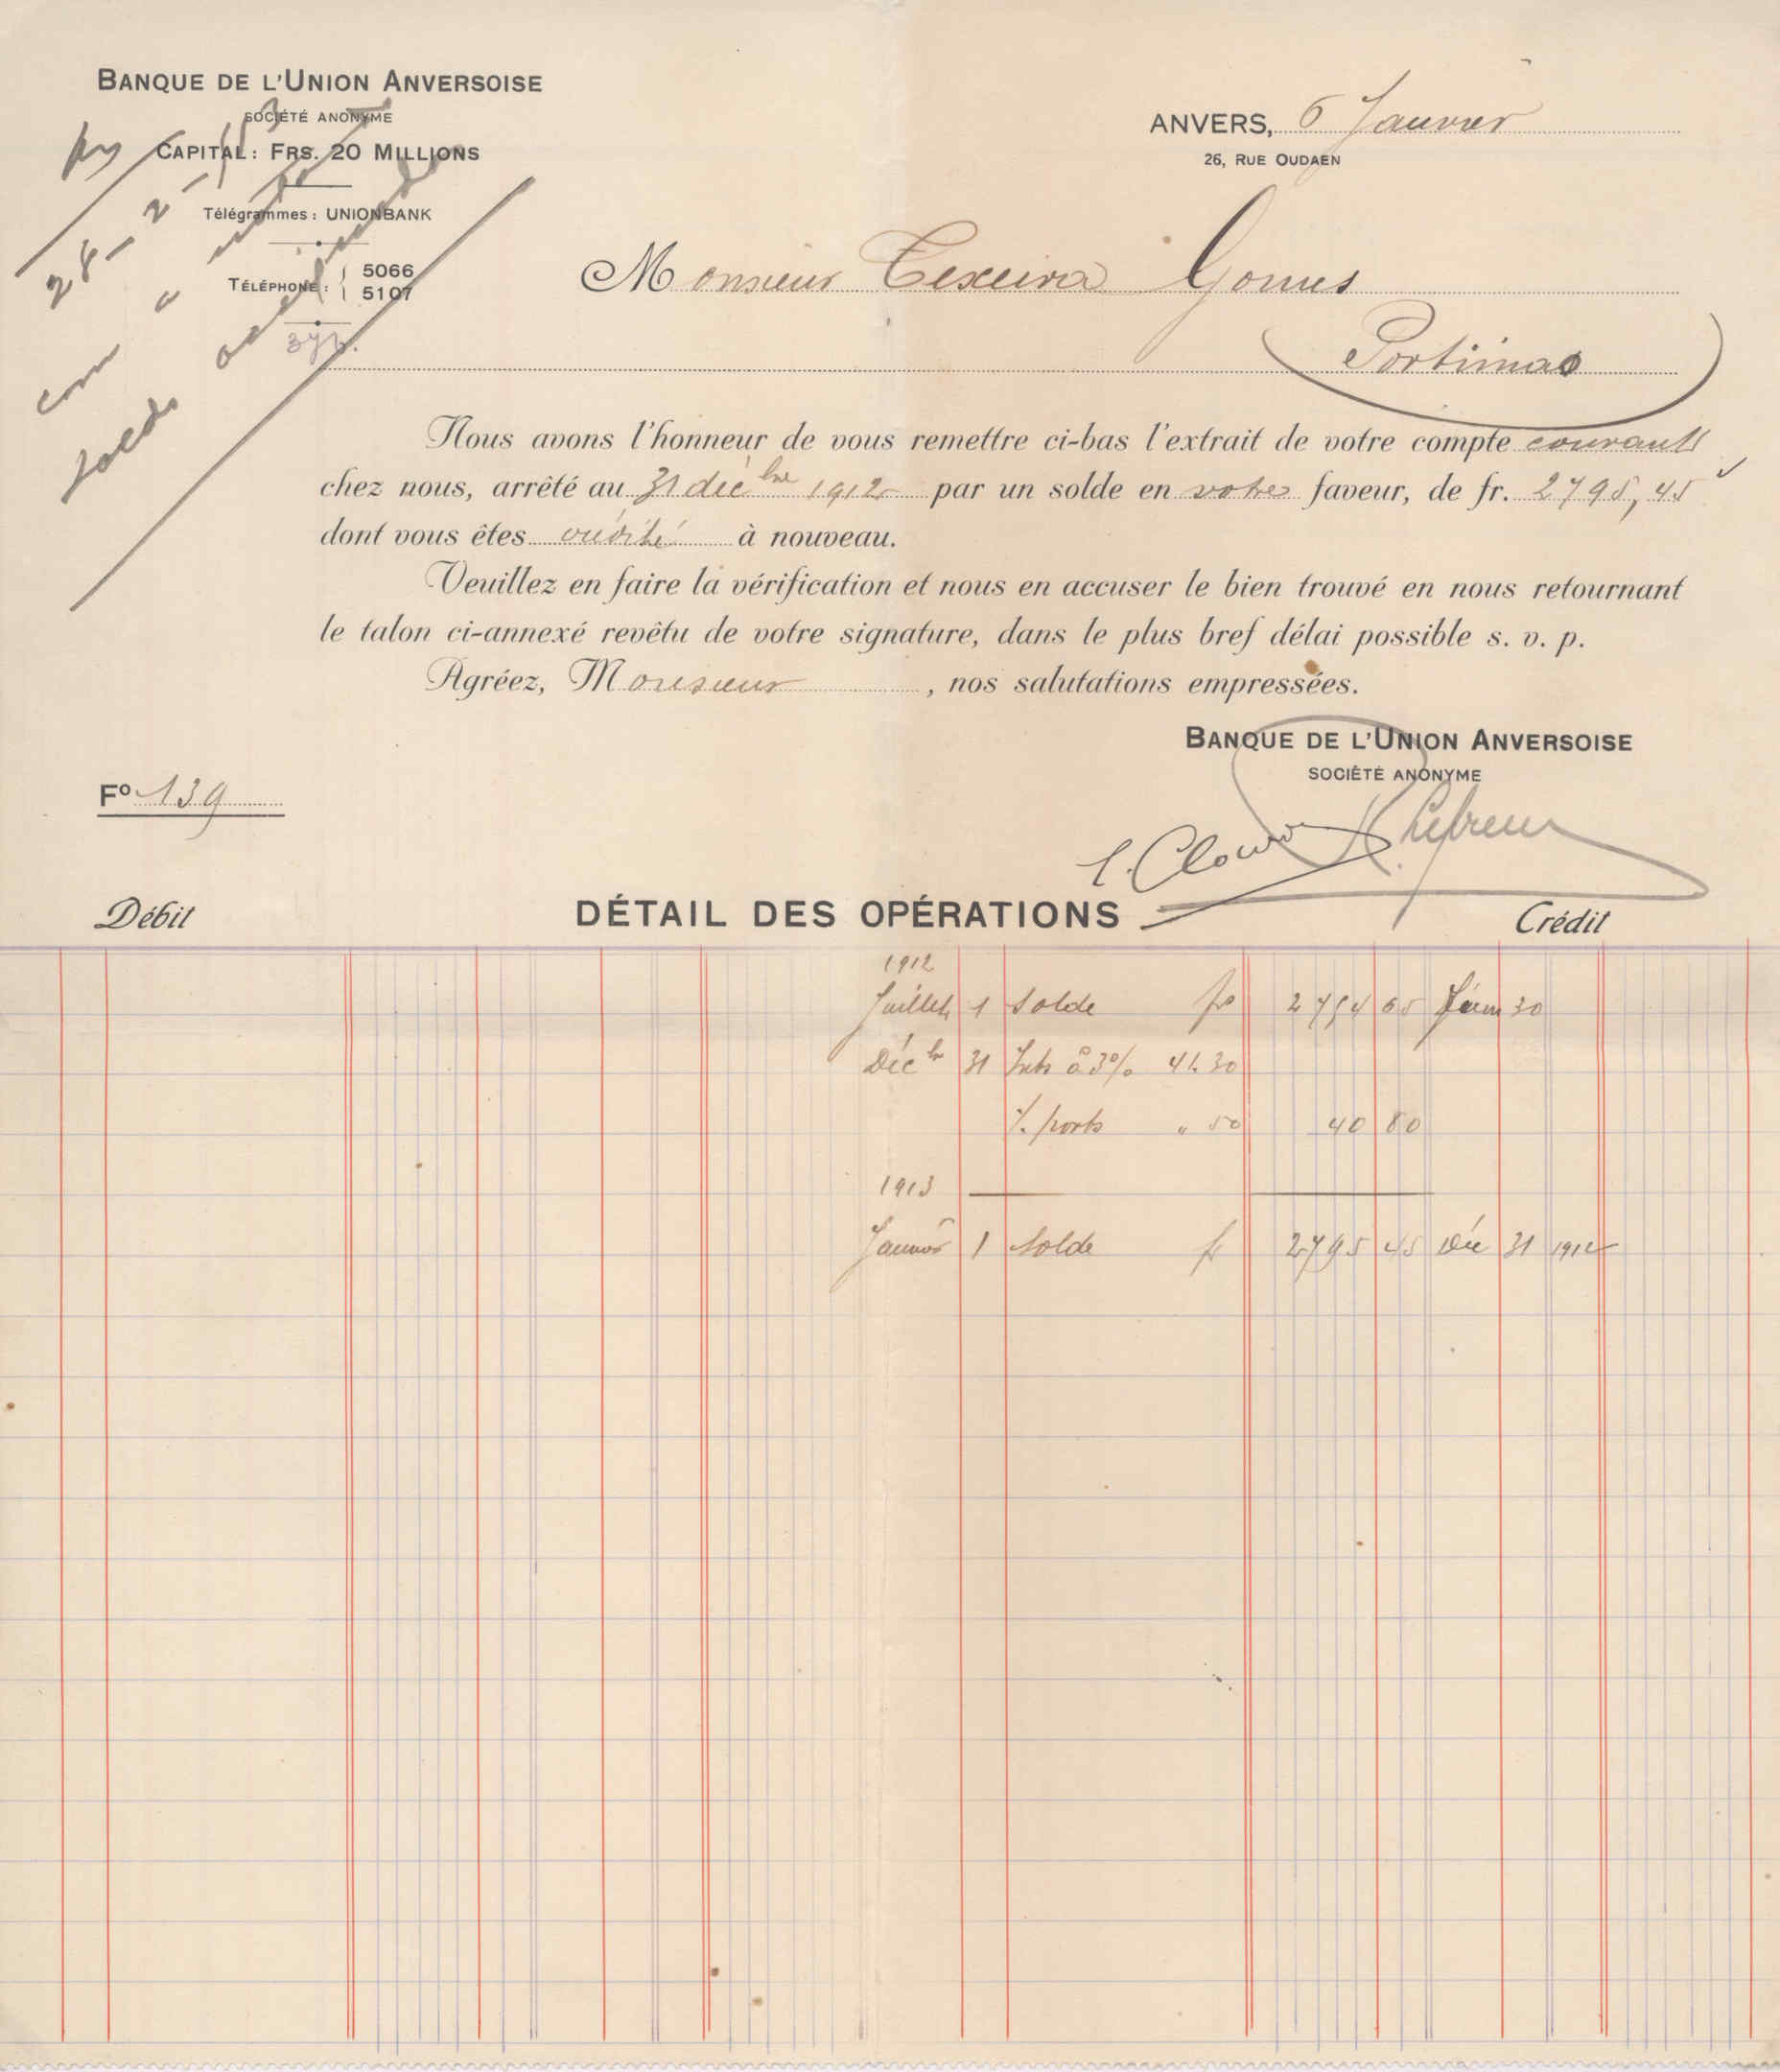 BANQUE DE L'UNION ANVERSOISE
SOCIÉTÉ ANONYME
CAPITAL: FRS. 20 MILLIONS
Télégrammes: UNIONBANK
TÉLÉPHONE: 5066
5107
28-2-13
saldo
ANVERS, 6 Janvier
26, RUE OUDAEN
Monsieur Texeira Gomes
Portimao
Nous avons l'honneur de vous remettre ci-bas l'extrait de votre compte courant
chez nous, arrêté au 31 décbre 1912 par un solde en votre faveur, de fr. 2795,45
dont vous êtes crédité à nouveau.
Veuillez en faire la vérification et nous en accuser le bien trouvé en nous retournant
le talon ci-annexé revêtu de votre signature, dans le plus bref délai possible s. v. p.
Agréez, Monsieur, nos salutations empressées.
BANQUE DE L'UNION ANVERSOISE
SOCIÉTÉ ANONYME
Fº 139
Débit DÉTAIL DES OPÉRATIONS Crédit
1912
Juillet 1 Solde fr 2754 65 Juin 30
Décbr 31 Ints à 3% 41.30
%. ports " 50 40 80
1913
Janvier 1 Solde fr 2795 45 Déc 31 1912